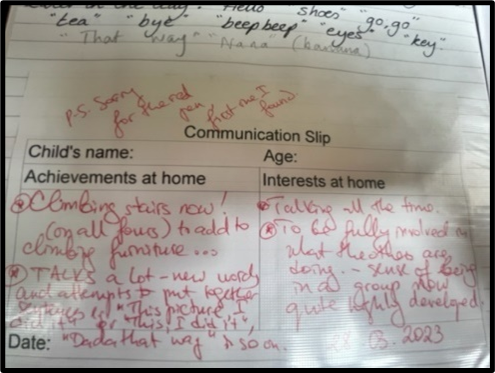 in the day. "Hello" "shoes" "go, go"
"tea" "bye" "beep beep" "eyes" "key".
"That way" "Nana (banana)
P.S. Sorry
for the red
pen, first one I
found.
Communication Slip
Child's name: Age:
Achievements at home Interests at home
Climbing stairs now!
(on all fours) to add to
climbing furniture...
TALKS a lot - new words
and attempts to put together
sentences "This picture I
did it" or "This! I did it",
"Dada that way" & so on.
Talking all the time.
To be fully involved in
what the others are
doing. - sense of being
in a group now
quite highly developed.
Date: 03.2023